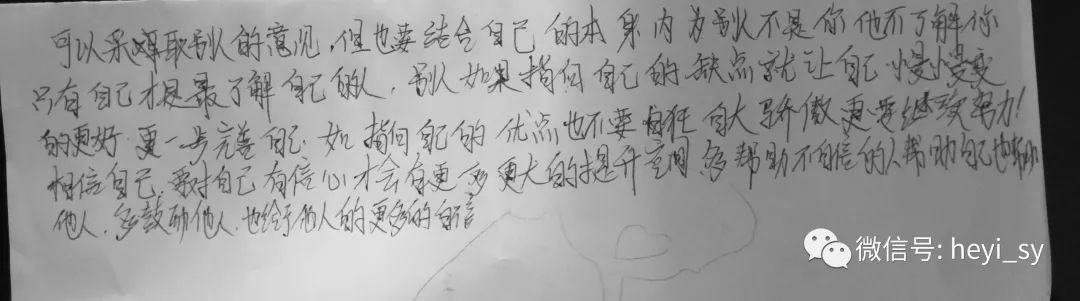 可以采取别人的意见,但也要结合自己的本身内为别人不是你他不了解你
只有自己才是最了解自己的人,别人如果指向自己的缺点就让自己慢慢变
的更好.更一步完善自己.如指向自己的优点也不要狂自大骄傲更要继续努力!
相信自己.要对自己有信心才会有更多更大的提升空间.多帮助不自信的人帮助自己也帮助
他人.多鼓励他人.也给于他人的更多的自信
微信号: heyi_sy